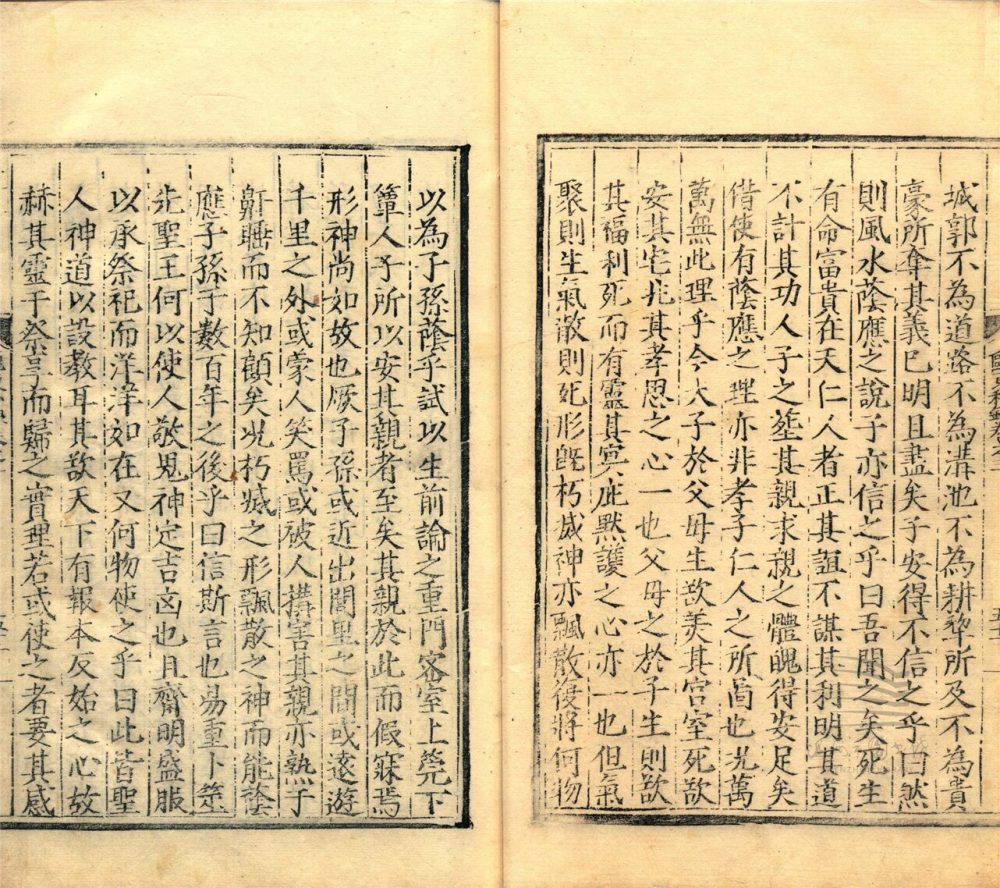 城郭不為道路不為溝池不為耕犂所及不為貴
豪所奪其義已明且盡矣子安得不信之乎曰然
則風水蔭應之說子亦信之乎曰吾聞之矣死生
有命富貴在天仁人者正其誼不謀其利明其道
不計其功人子之塟其親求親之體魄得安足矣
借使有蔭應之理亦非孝子仁人之所啚也况萬
萬無此理乎今夫子於父母生欲美其宫室死欲
安其宅兆其孝思之心一也父母之於子生則欲
其福利死而有靈其冥庇黙護之心亦一也但氣
聚則生氣散則死形旣朽滅神亦飄散復將何物
以為子孫蔭乎試以生前論之重門宻室上莞下
簟人子所以安其親者至矣其親於此而假寐焉
形神尚如故也厥子孫或近出閭里之間或逺遊
千里之外或蒙人笑罵或被人搆害其親亦熟于
鼾睡而不知顧矣况朽滅之形飄散之神而能蔭
應子孫于數百年之後乎曰信斯言也易重卜筮
先聖王何以使人敬鬼神定吉凶也且齋明盛服
以承祭祀而洋洋如在又何物使之乎曰此皆聖
人神道以設教耳其欲天下有報本反始之心故
赫其靈于祭享而歸之實理若或使之者要其感